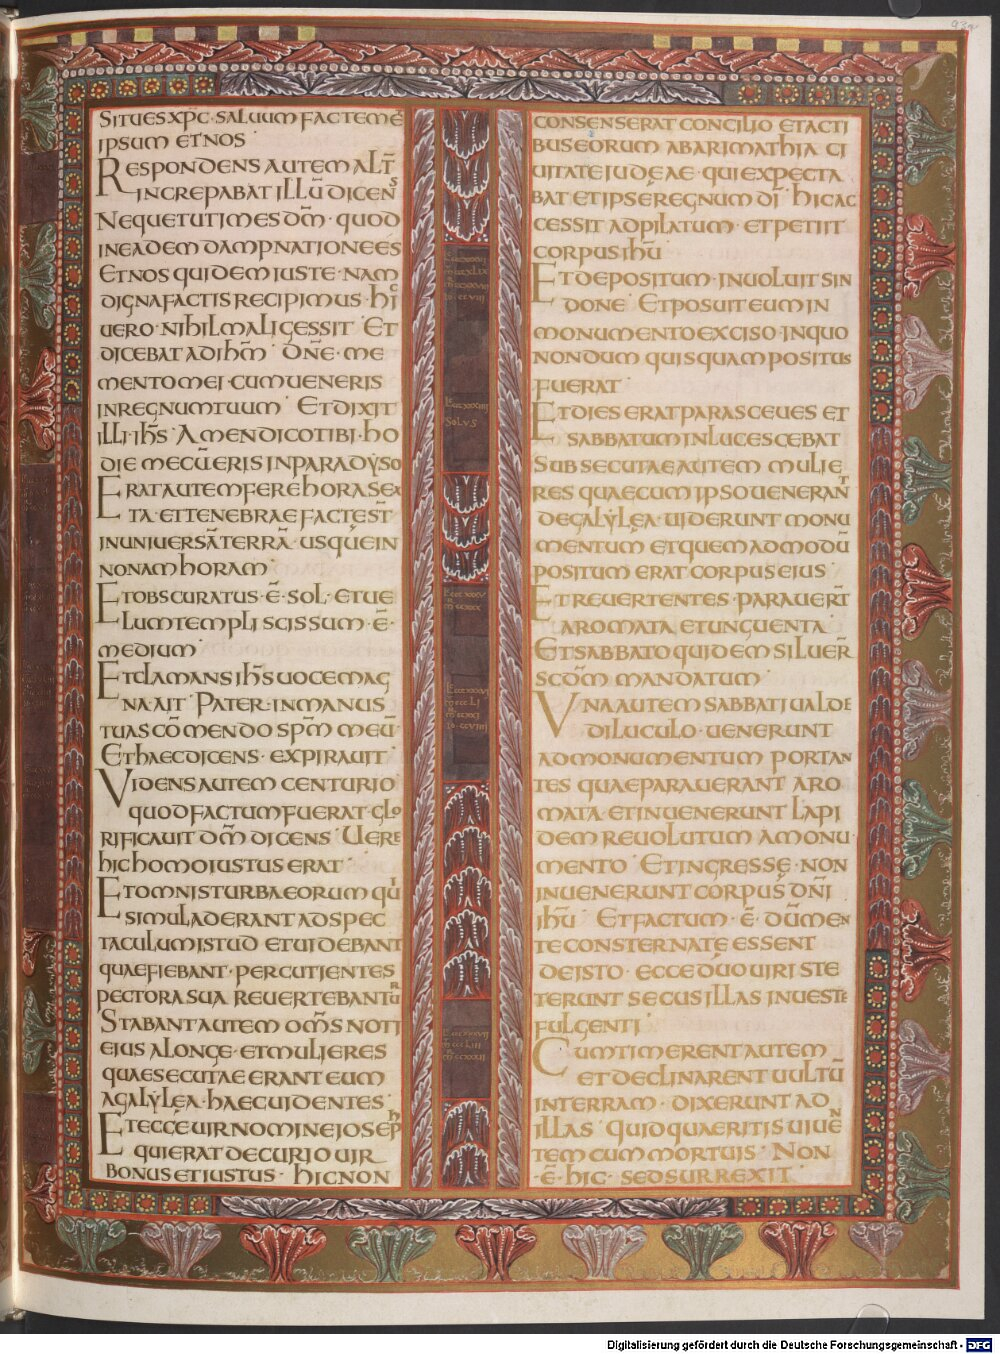 SITUES XP̄C· SALUUM FACTEMĒ
IPSUM ETNOS·
RESPONDENS AUTEM ALT̄
INCREPABAT ILLŪ DICENS
NEQUE TU TIMES DM̄· QUOD
INEADEM DAMPNATIONE ES
ET NOS QUIDEM IUSTE· NAM
DIGNA FACTIS RECIPIMUS· HIC
UERO· NIHIL MALI GESSIT· ET
DICEBAT AD IHM̄· DN̄E· ME
MENTO MEI· CUM UENERIS
IN REGNUM TUUM· ET DIXIT
ILLI· IHS̄· AMEN DICO TIBI· HO
DIE MECŪ ERIS IN PARADYSO
ERAT AUTEM FERE HORA SEX
TA· ET TENEBRAE FACT̄ EST
IN UNIUERSĀ TERRĀ· USQUE IN
NONAM HORAM·
ET OBSCURATUS· Ē· SOL· ET UE
LUM TEMPLI SCISSUM· Ē·
MEDIUM·
ET CLAMANS IHS̄ UOCE MAG
NA AIT· PATER· IN MANUS
TUAS CŌMENDO SPM̄ MEŪ·
ET HAEC DICENS· EXPIRAUIT·
VIDENS AUTEM CENTURIO
QUOD FACTUM FUERAT· GLO
RIFICAUIT DM̄ DICENS· UERE
HIC HOMO IUSTUS ERAT·
ET OMNIS TURBA EORUM QUI
SIMUL ADERANT AD SPEC
TACULUM ISTUD ET UIDEBANT
QUAE FIEBANT· PERCUTIENTES
PECTORA SUA REUERTEBANTUR
STABANT AUTEM OM̄S NOTI
EIUS A LONGE· ET MULIERES
QUAE SECUTAE ERANT EUM
A GALYLĘA· HAEC UIDENTES·
ET ECCE UIR NOMINE IOSEPH
QUI ERAT DECURIO UIR
BONUS ET IUSTUS· HIC NON
SOLUS
CONSENSERAT CONCILIO ET ACTI
BUS EORUM AB ARIMATHIA CI
UITATE IUDEAE· QUI EXPECTA
BAT ET IPSE REGNUM DĪ· HIC AC
CESSIT AD PILATUM· ET PETIIT
CORPUS IHŪ
ET DEPOSITUM· INUOLUIT SIN
DONE· ET POSUIT EUM IN
MONUMENTO EXCISO· IN QUO
NONDUM QUISQUAM POSITUS
FUERAT·
ET DIES ERAT PARASCEUES ET
SABBATUM INLUCESCEBAT
SUBSECUTAE AUTEM MULIE
RES QUAE CUM IPSO UENERANT
DE GALYLĘA· UIDERUNT MONU
MENTUM ET QUEMADMODŪ
POSITUM ERAT CORPUS EIUS·
ET REUERTENTES· PARAUER̄T
AROMATA ET UNGUENTA·
ET SABBATO QUIDEM SILUER̄
SCD̄M MANDATUM·
VNA AUTEM SABBATI UALDE
DILUCULO· UENERUNT
AD MONUMENTUM PORTAN
TES QUAE PARAUERANT ARO
MATA· ET INUENERUNT LAPI
DEM REUOLUTUM A MONU
MENTO· ET INGRESSĘ· NON
INUENERUNT CORPUS DN̄I
IHŪ· ET FACTUM· Ē· DŪ MEN
TE CONSTERNATĘ ESSENT
DE ISTO· ECCE DUO UIRI STE
TERUNT SECUS ILLAS IN UESTE
FULGENTI·
CUM TIMERENT AUTEM
ET DECLINARENT UULTŪ
IN TERRAM· DIXERUNT AD
ILLAS· QUID QUAERITIS UIUEN
TEM CUM MORTUIS· NON
Ē· HIC· SED SURREXIT·
Digitalisierung gefördert durch die Deutsche Forschungsgemeinschaft - DFG